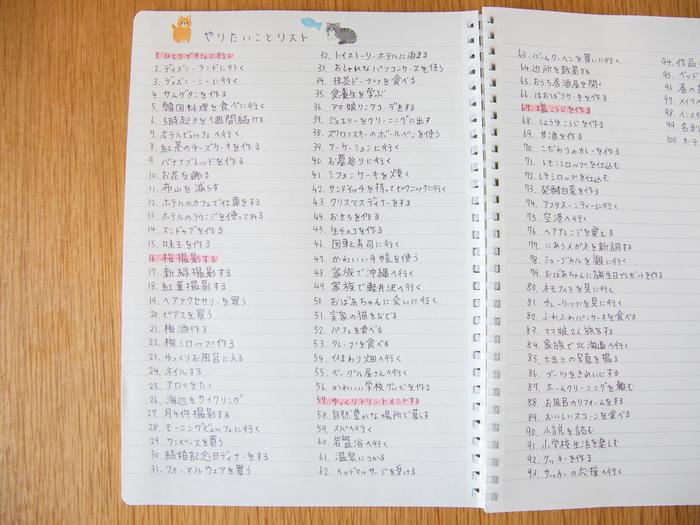 やりたいことリスト
1. ひとりでカフェに行く
2. ディズニーランドに行く
3. ディズニーシーに行く
4. サムゲタンを作る
5. 韓国料理を食べに行く
6. 5時起きを1週間続ける
7. ホテルビュッフェへ行く
8. 紅茶のチーズケーキを作る
9. バナナブレッドを作る
10. お花を飾る
11. 布山を減らす
12. ホテルのカフェで仕事をする
13. ホテルのラウンジを使ってみる
14. スンドゥブを作る
15. 味玉を作る
16. 桜撮影する
17. 新緑撮影する
18. 紅葉撮影する
19. ヘアアクセサリーを買う
20. ピアスを買う
21. 梅酒作る
22. 梅シロップ作る
23. ゆっくりお風呂に入る
24. ネイルする
25. アロマをたく
26. 海辺をサイクリング
27. 月4件撮影する
28. モーニングビュッフェに行く
29. ワンピースを買う
30. 結婚記念日ディナーをする
31. フォーマルウェアを買う
32. トイストーリーホテルに泊まる
33. おしゃれなパソコンケースを使う
34. 抹茶ドーナツを食べる
35. 食養生を学ぶ
36. ママ娘リンクコーデをする
37. ジュエリーをクリーニングに出す
38. スワロフスキーのボールペンを使う
39. ワーケーションに行く
40. お墓参りに行く
41. シフォンケーキを焼く
42. サンドイッチを持ってピクニックに行く
43. クリスマスディナーをする
44. おもちを作る
45. 生チョコを作る
46. 回転寿司に行く
47. かわいい手帳を使う
48. 家族で沖縄へ行く
49. 家族で軽井沢へ行く
50. おばあちゃんに会いに行く
51. 実家の猫をなでる
52. パフェを食べる
53. クレープを食べる
54. ひまわり畑へ行く
55. ベーグル屋さんへ行く
56. かわいい学校グッズを作る
57. ゆっくりトリートメントする
58. 自然豊かな場所で暮らす
59. スパへ行く
60. 岩盤浴へ行く
61. 温泉につかる
62. ヘッドマッサージを受ける
63. バームクーヘンを買いに行く
64. 近所を散策する
65. おうち居酒屋を開く
66. はおばりケーキを作る
67. 塩こうじを作る
68. しょうゆこうじを作る
69. 甘酒を作る
70. こだわりのカレーを作る
71. レモンシロップを仕込む
72. しそシロップを仕込む
73. 発酵白菜を作る
74. アフタヌーンティーに行く
75. 空港へ行く
76. ヘアアレンジを覚える
77. にあうメガネを新調する
78. ミュージカルを観に行く
79. おばあちゃんに誕生日プレゼントを作る
80. ネモフィラを見に行く
81. チューリップを見に行く
82. ふわふわパンケーキを食べる
83. ママ娘2人旅をする
84. 家族で北海道へ行く
85. 七五三の写真を撮る
86. ブーツをきれいにする
87. ホームクリーニングを頼む
88. お風呂のリフォームをする
89. おいしいスコーンを食べる
90. 小説を読む
91. 小学校生活を楽しむ
92. クッキーを作る
93. サッカーの応援へ行く
94. 作品
95. ベッド
96. 春の
97. メイク
98. インスタ
99. 名刺
100. カーテ